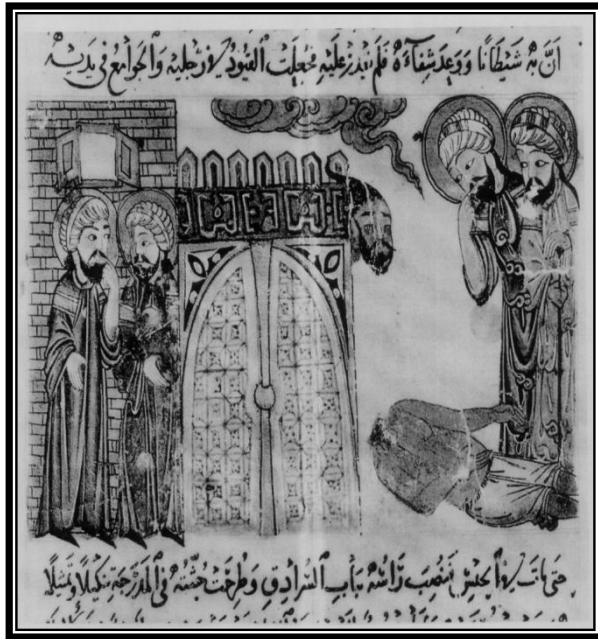 اَنَّ بِهِ شَيْطَانًا وَوَعَدَ شِفَآءَهُ فَلَمْ يَقْدِرْ عَلَيْهِ فَجُعِلَتْ القُيُودُ فى رِجْلَيْهِ وَالجَوَامِعُ فى يَدَيْهِ
حتى مَاتَ فى الحَبْسِ فَنُصِبَ رَاْسُهُ بِبَابِ السُّرَادِقِ وَطُرِحَتْ جُثَّتُهُ فى المَدْرَجَةِ تَنْكِيلًا وَتَمْثِيلًا